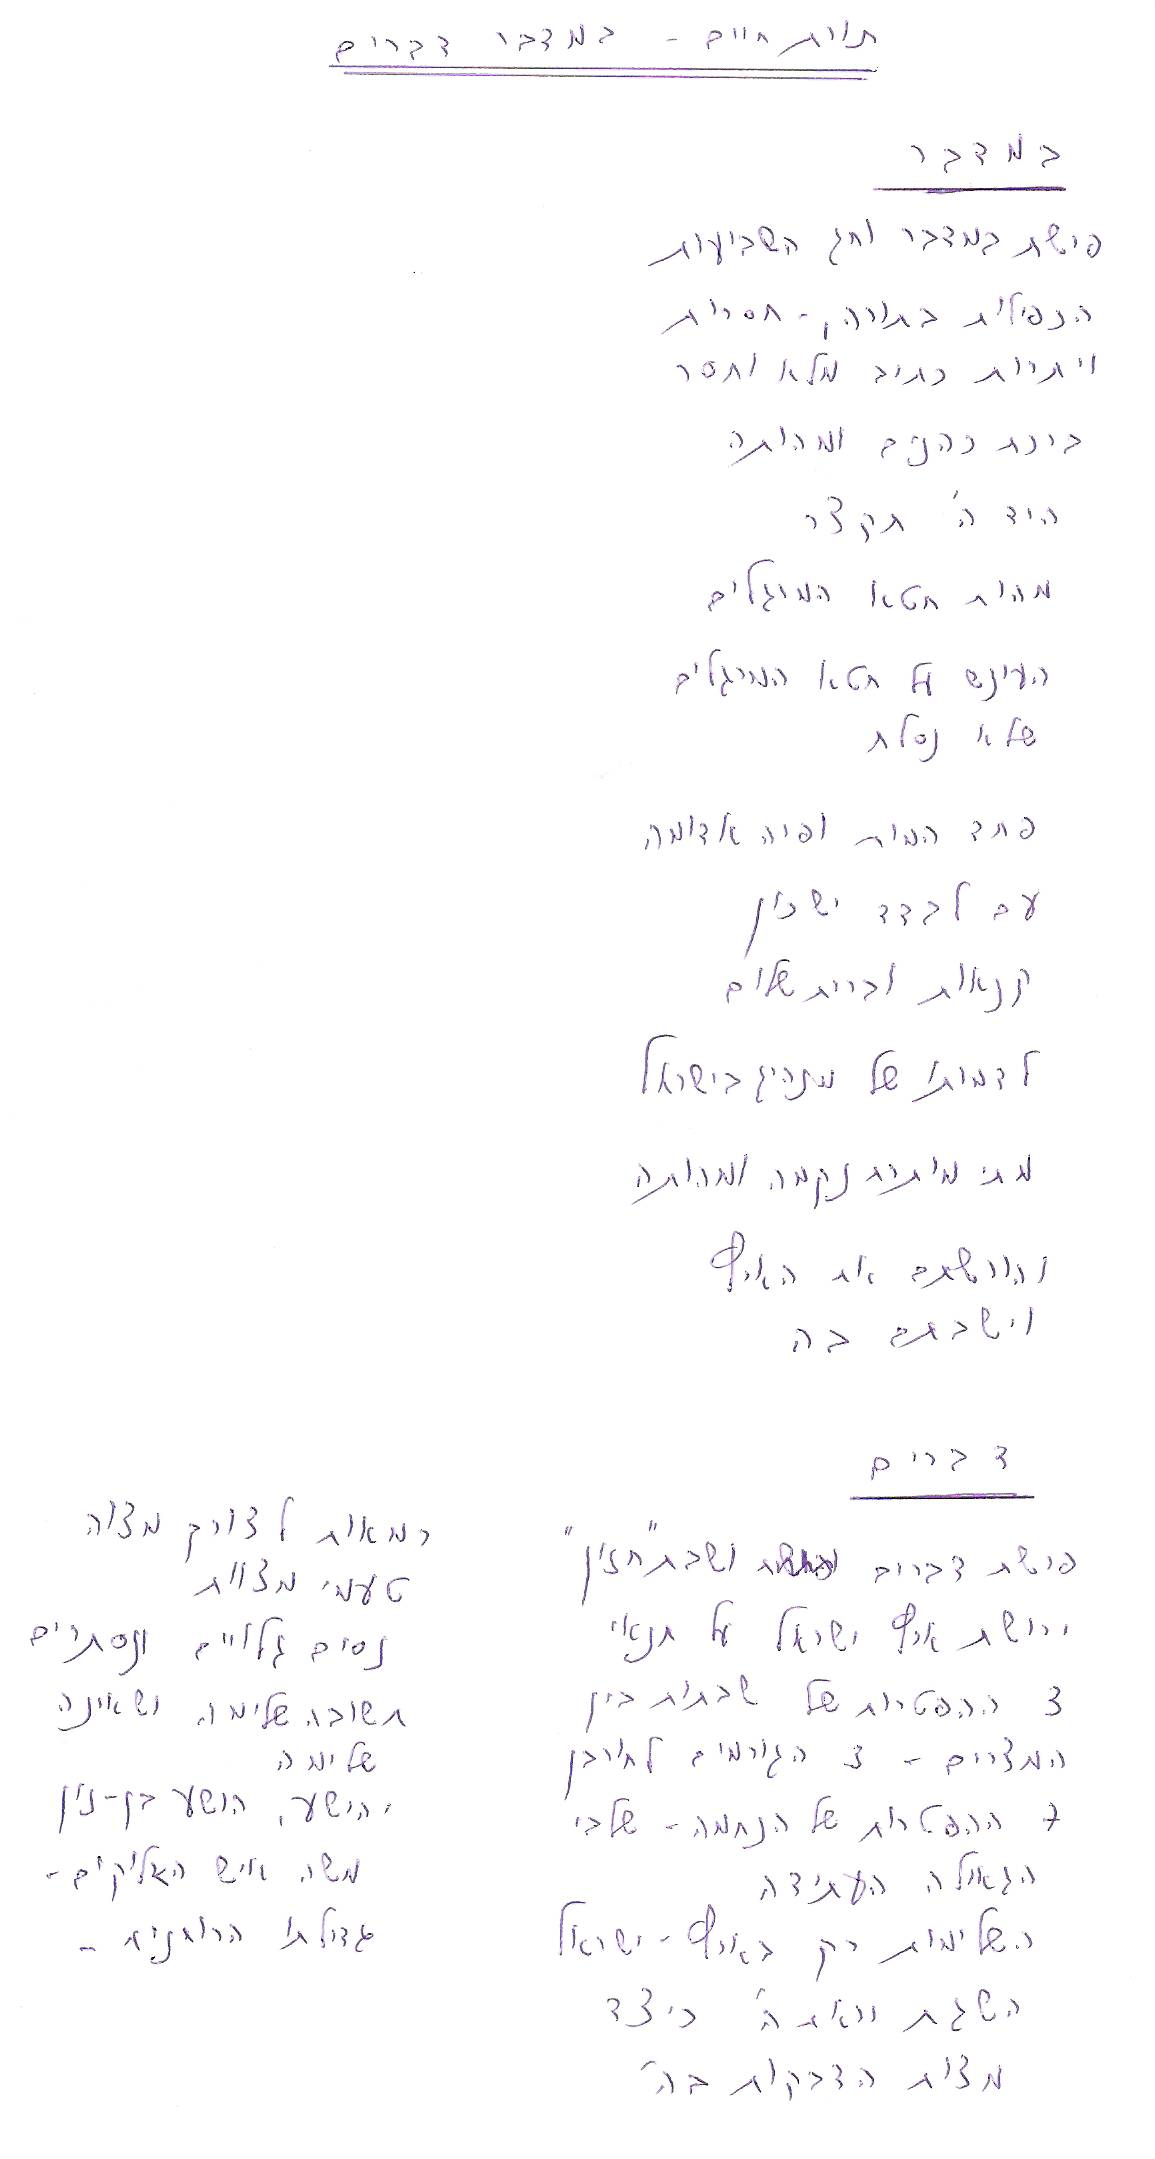 תורת חיים - במדבר דברים
במדבר
פרשת במדבר וחג השביעות
הכפילות בתורה, - חסרות
ויתרות כתיב מלא וחסר
ברכת כהנים ומהותה
היד ה' תקצר
מהות חטא המרגלים
העונש על חטא המרגלים
שלא נסלח
פחד המות ופרה אדומה
עם לבדד ישכון
קנאות וברית שלום
לדמותו של מנהיג בישראל
מתי מותרת נקמה ומהותה
והורשתם את הארץ
וישבתם בה
דברים
פרשת דברים ושבת "חזון"
ירושת ארץ ישראל על תנאי
3 ההפטרות של שבתות בין
המצרים - 3 הגורמים לחורבן
7 ההפטרות של הנחמה - שלבי
הגאולה העתידה
השלימות רק בארץ - ישראל
השגת יראת ה' כיצד
מצות הדבקות בה'
רמאות לצורך מצוה
טעמי מצוות
נסים גלויים ונסתרים
תשובה שלימה ושאינה
שלימה
יהושע, הושע בן-נון
משה איש האלקים -
גדולתו הרוחנית -